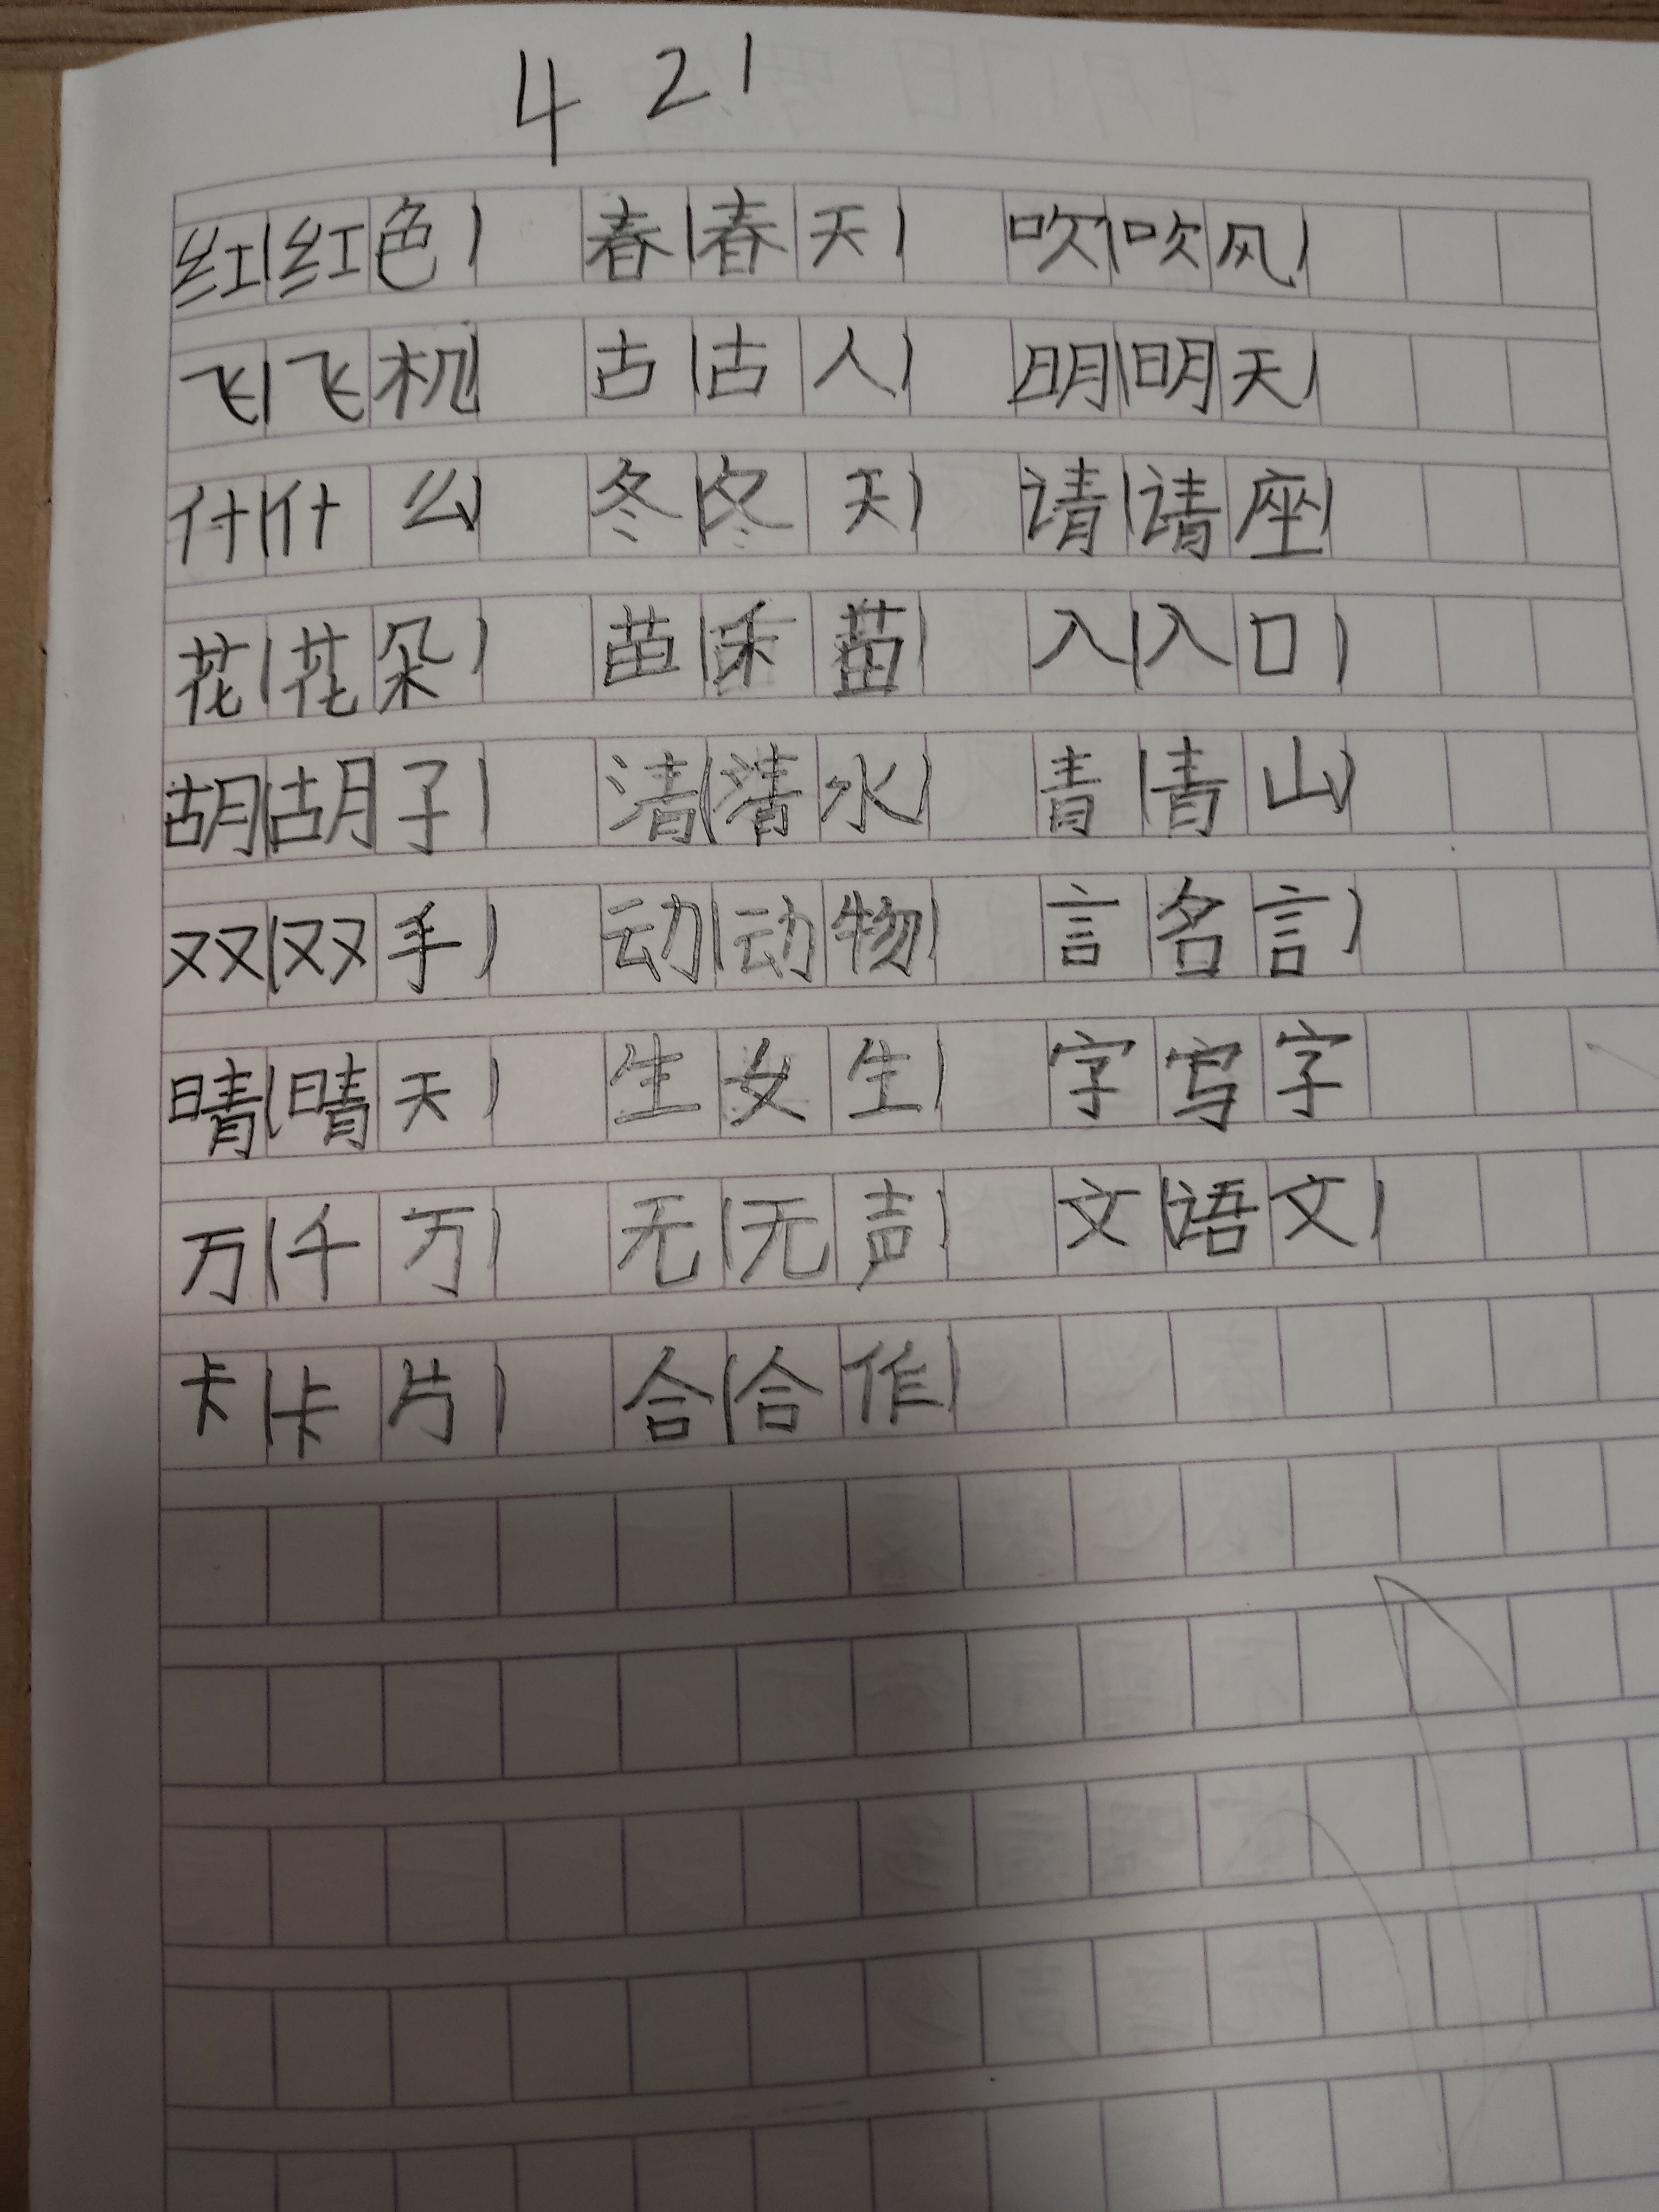 4 21
红(红色) 春(春天) 吹(吹风)
飞(飞机) 古(古人) 明(明天)
什(什么) 冬(冬天) 请(请座)
花(花朵) 苗(禾苗) 入(入口)
胡(胡子) 清(清水) 青(青山)
双(双手) 动(动物) 言 名言)
晴(晴天) 生 女生) 字 写字
万(千万) 无(无声) 文(语文)
卡(卡片) 合(合作)